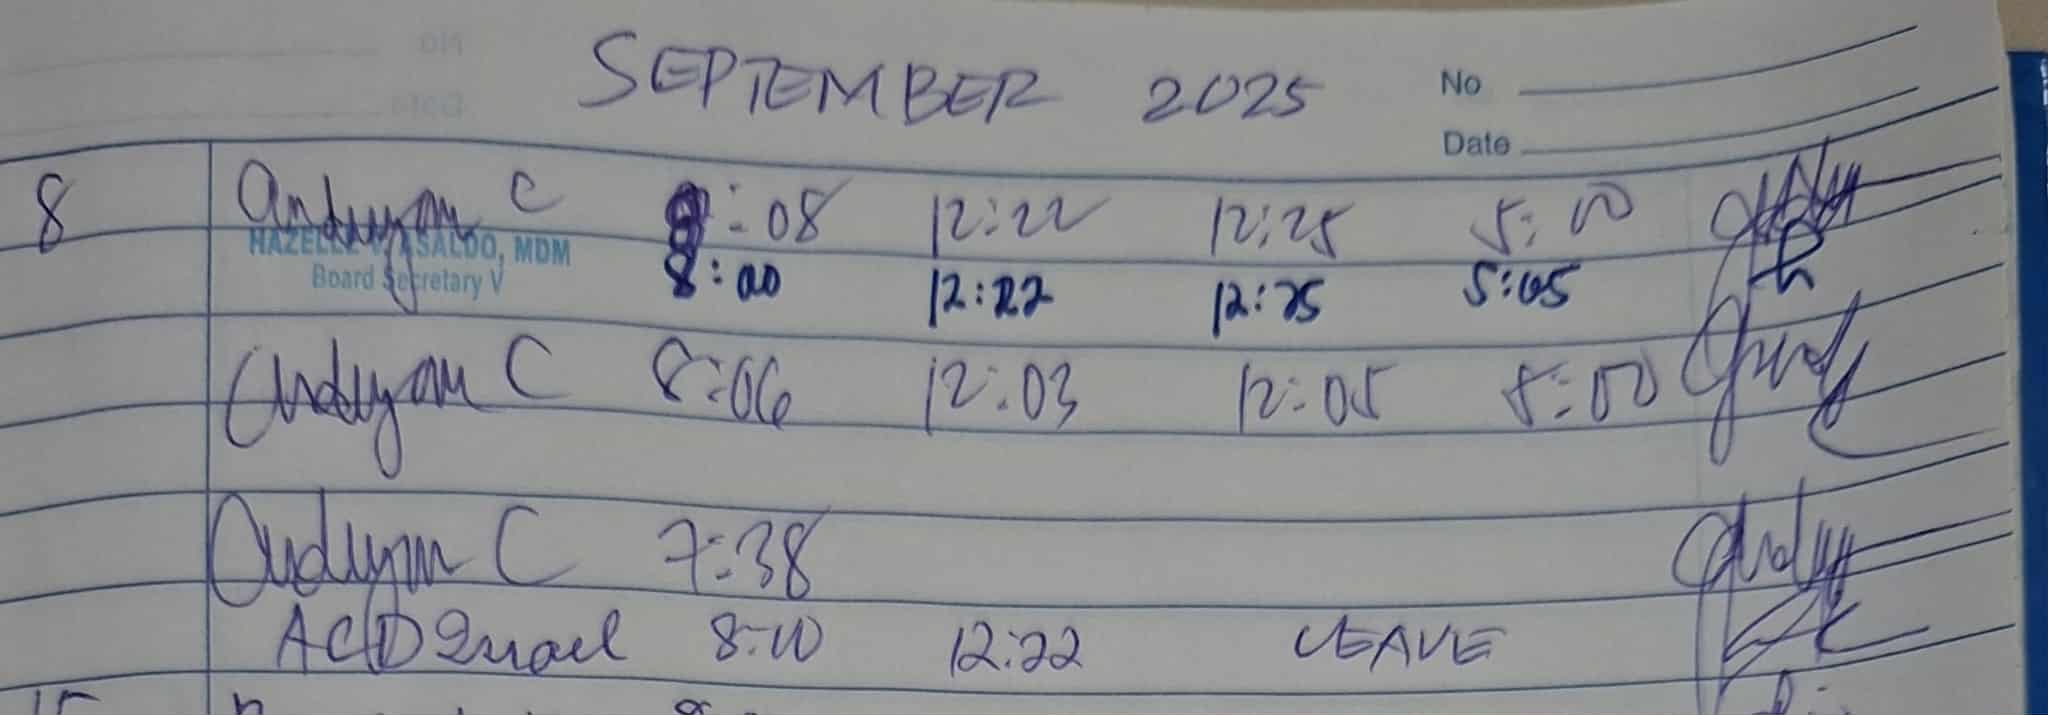 SEPTEMBER 2025
No
Date
8 Andyam C :08 12:22 12:25 5:00
HAZELLE SALDO, MDM
Board Secretary V
8:00 12:22 12:25 5:05
Andyam C 8:06 12:03 12:05 5:00
Andyam C 7:38
8:00 12:22 LEAVE
15